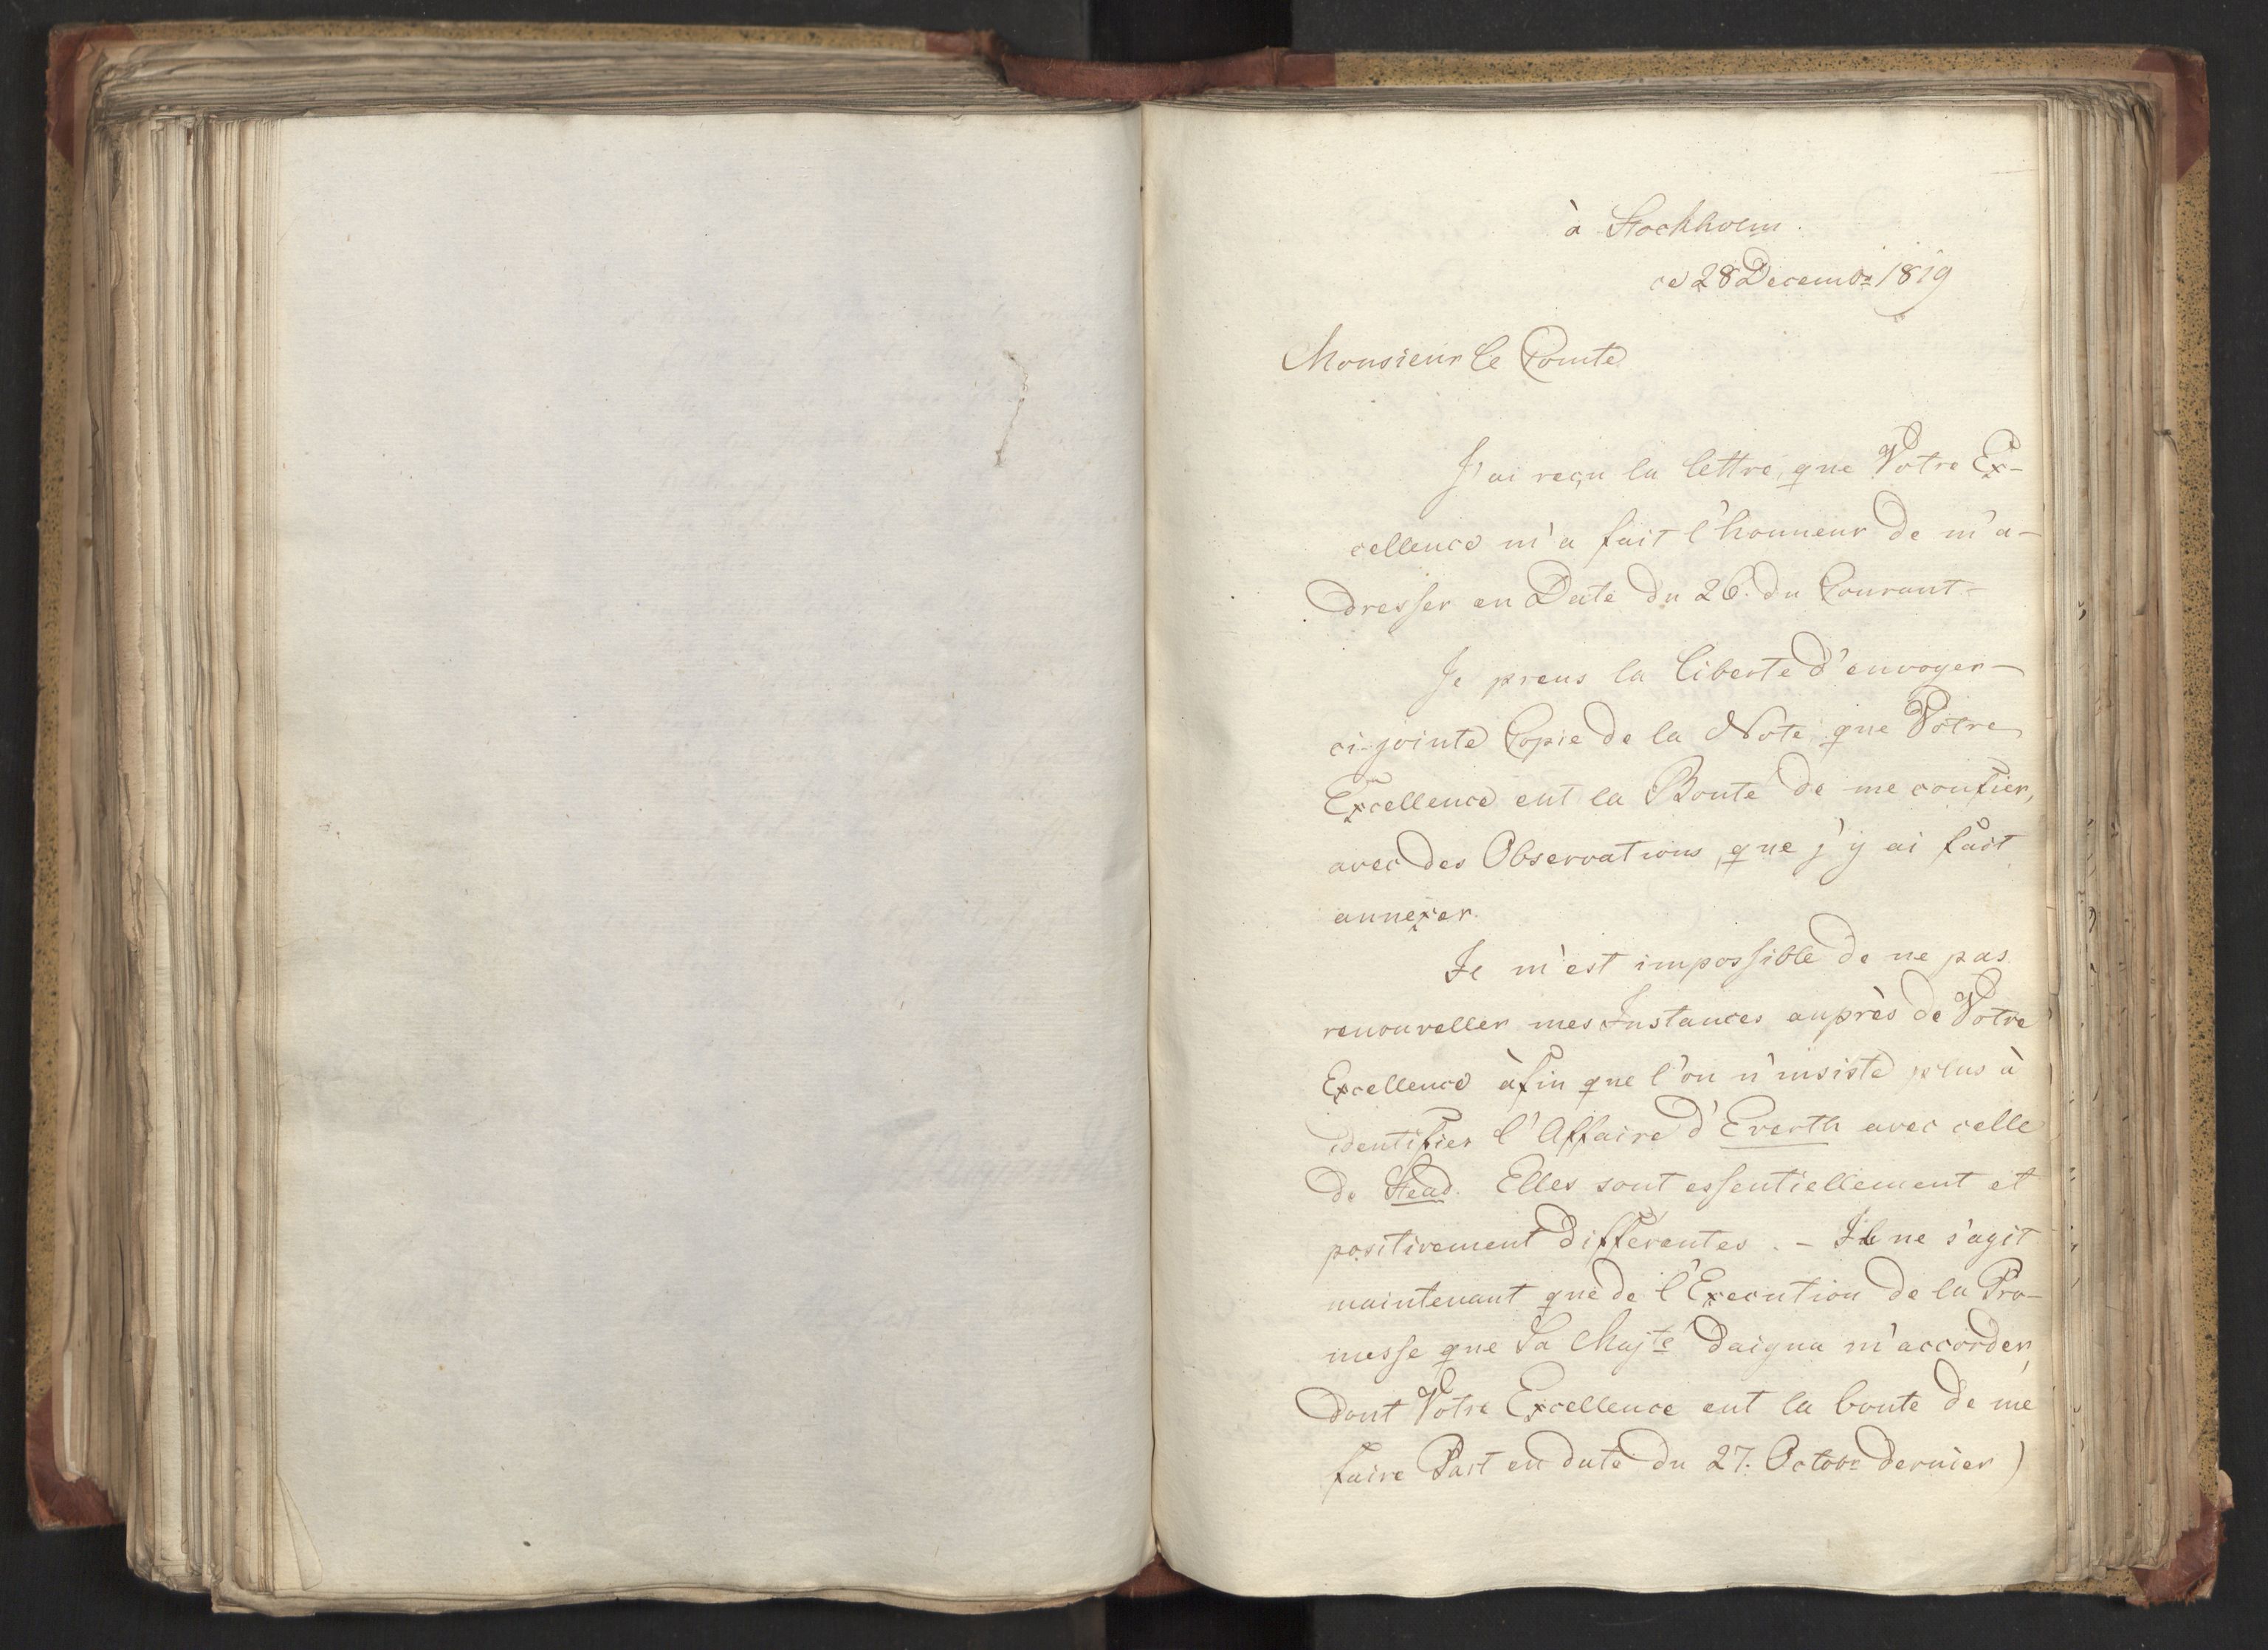 à Stockholm.
ce 28 Decembr 1819
Monsieur le Comte
J'ai reçu la lettre, que Votre Ex-
cellence m'a fait l'honneur de m'a-
dresser en Date du 26. du Courant-
Je prens la liberte d'envoyer-
ci-jointe Copie de la Note, que Votre
Excellence eut la Bonté de me confier,
avec des Observations, que j'y ai fait
annexer.
Il m'est impossible de ne pas
renouveller mes Instances auprès de Votre
Excellence àfin que l'on n'insiste plus à
identifier l'Affaire d'Everth avec celle
de Stead. Elles sont essentiellement et
positivement differentes. - Il ne s'agit
maintenant que de l'Execution de la Pro-
messe que Sa Majté daigna m'accorder,
dont Votre Excellence eut la bonte de me
faire Part en date du 27. Octobr dernier)